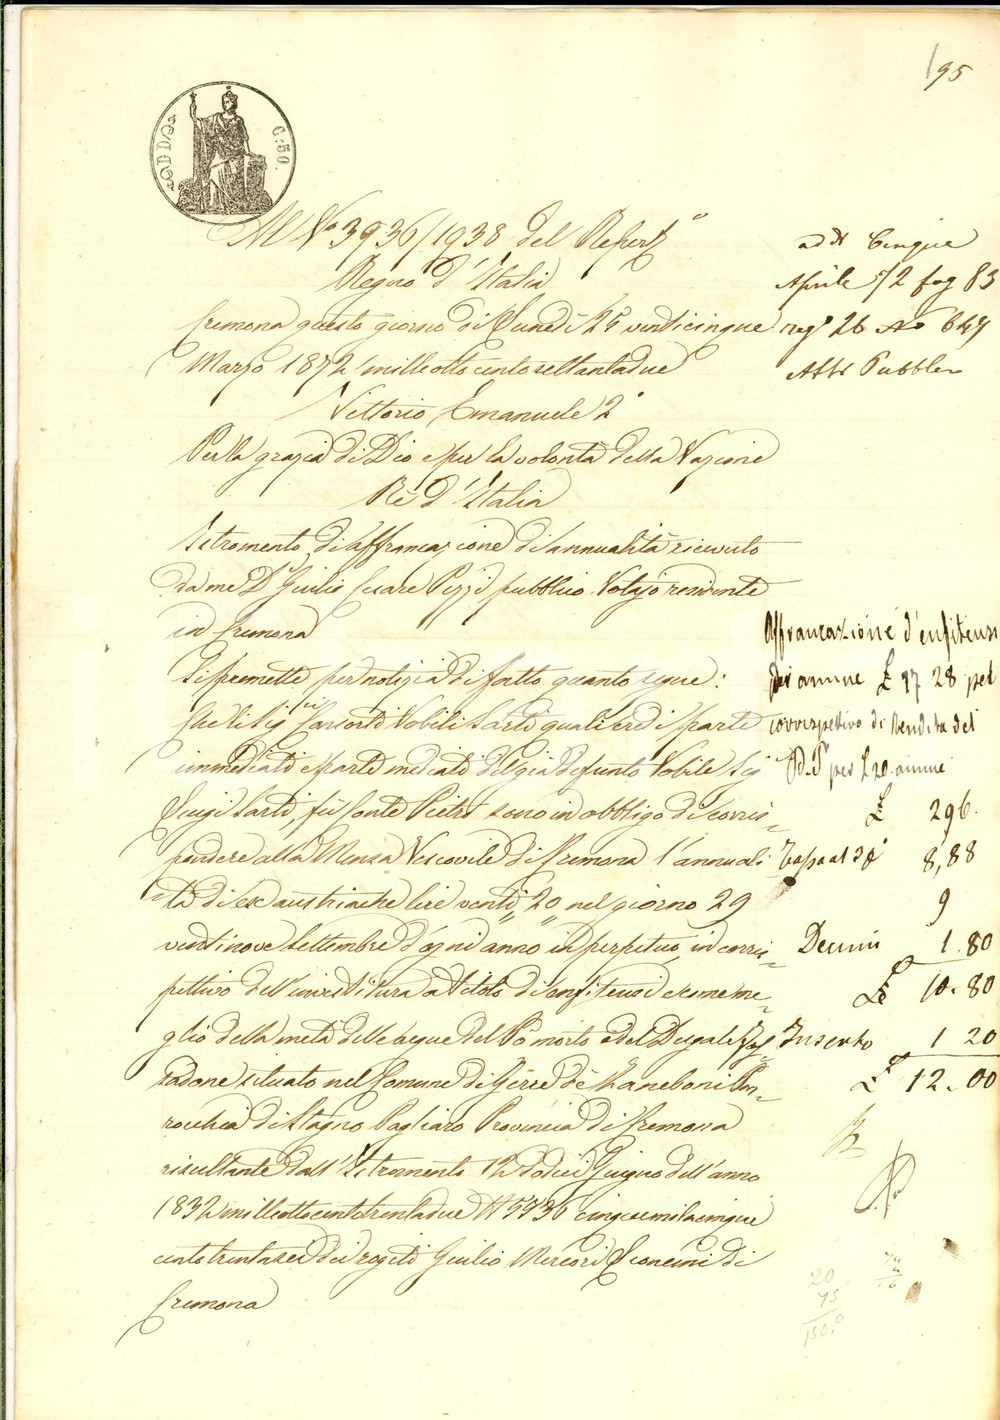 195
C: 50.
Al No 3936/1938 del Repert°
Regno d'Italia
Cremona questo giorno di Lunedì 25 venticinque
Marzo 1872 milleottocentosettantadue
Vittorio Emanuele 2°
Per la grazia di Dio e per la volontà della Nazione
Rè d'Italia
Istromento di affrancazione di annualità ricevuto
da me Dr Giulio Cesare Pizzi pubblico Notajo residente
in Cremona
Si premette per notizia di fatto quanto segue:
Che li Sigri Consorti Nobili Sarti quali eredi parte
immediati e parte mediati del già defunto Nobile Sig
Luigi Sarti, fu Conte Pietro sono in obbligo di corris=
pondere alla Mensa Vescovile di Cremona l'annuali
tà di ex austriache lire venti „20„ nel giorno 29
ventinove Settembre d'ogni anno in perpetuo, in corris=
pettivo dell'investitura a titolo di enfiteusi come me=
glio della metà delle acque del Pò morto e del Dugale
tadone situato nel Comune di Gerre dè Zaneboni Par=
rocchia di Stagno Pagliaro Provincia di Cremona
risultante dall'Istromento 12 dodici Giugno dell'anno
1832 milleottocentotrentadue N 5536 cinquemilacinque
centotrentasei dei rogiti Giulio Mercori di
Cremona
addi Cinque
Aprile 72 fog 83
reg° 26 No 647
Atti Pubbler
Affrancazione d'enfiteusi
per annue £ 17 28 pel
corrispettivo di Rendita del
D.P per £ 20 annue
£ 296.
Tassa al 30 8,88
9
Decimi 1.80
£ 10.80
Inserto 1 20
£ 12.00
20
75
150.0